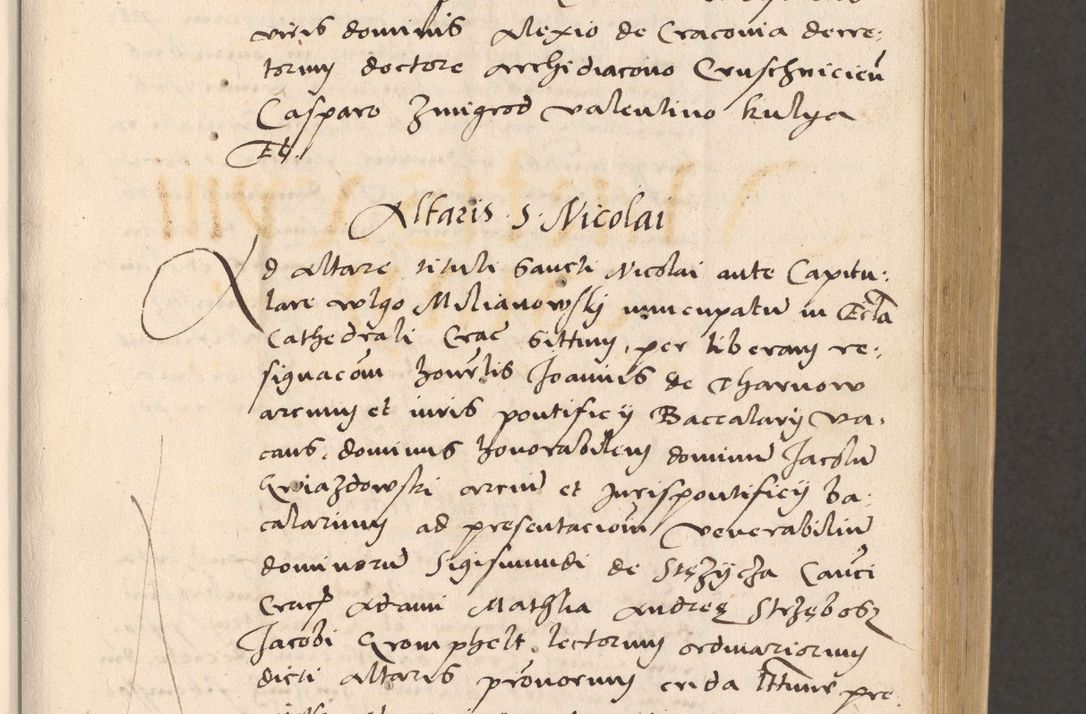 viris dominis Alexio de Cracovia decre:
torum doctore archidiacono Cruschnicień
Casparo Zmigrod Valentino kulga
Etc.
Altaris S. Nicolai
Ad Altare tituli Sancti Nicolai ante Capitu:
lare vulgo Milianowskj nuncupatū in Eccla
Cathedrali Crac̄ Sittum, per liberam re:
signacōm honorlis Joannis de Tharnow
arcium et iuris pontificij Baccalarij va:
cans, dominus honorabilem dominū Jacobū
Gwiazdowski arciū et Jurispontificij ba:
calarium ad presentaciom Venerabiliū
dominorū Sigismundi de Stężycza Canci
Crac Adami Mathia Andreę Strzębosz
Jacobi Gromphelt lectorum ordinariorum
dicti Altaris provorum crida lttme pre: